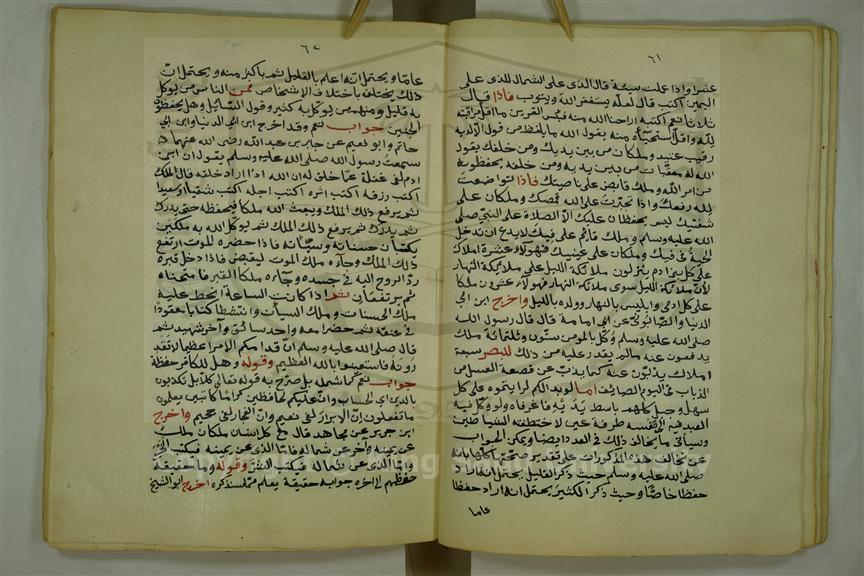 ٦١
عشرا واذا عملت سيئة قال الذى على الشمال للذى على
اليمين اكتب قال لعله يستغفر الله ويتوب فاذا قال
ثلاثا نعم اكتبه اراحنا الله منه فبئس القرين ما اقل مراقبته
لله واقل استحياءه منه يقول الله ما يلفظ من قول الا لديه
رقيب عتيد وملكان من بين يديك ومن خلفك يقول
الله له معقبات من بين يديه ومن خلفه يحفظونه
من امر الله وملك قابض على ناصيتك فاذا تواضعت
لله رفعك واذا تجبرت على الله قصمك وملكان على
شفتيك ليس يحفظان عليك الا الصلاة على النبى صلى
الله عليه وسلم وملك قائم على فيك لا يدع ان تدخل
الحية فى فيك وملكان على عينيك فهولاء عشرة املاك
على كل بنى ادم ينزلون ملائكة الليل على ملائكة النهار
لان ملائكة الليل سوى ملائكة النهار فهولاء عشرون ملكا
على كل ادمى وابليس بالنهار وولده بالليل واخرج ابن ابى
الدنيا والصابونى عن ابى امامة قال قال رسول الله
صلى الله عليه وسلم وكل بالمومن ستون وثلثمائة ملك
يدفعون عنه مالم يقدر عليه من ذلك للبصر سبعة
املاك يذبون عنه كما يذب عن قصعة العسل من
الذباب فى اليوم الصائف اما لو بدا لكم لرايتموه على كل
سهل وجبل كلهم باسط يديه فاغر فاه ولو وكل فيه
العبد فيه الى نفسه طرفة عين لاختطفته الشياطين
وسياتى ما يخالف ذلك فى العدد ايضا ويمكن الجواب
عن تخالف هذه المذكورات على تقدير صحتها كلها بانه
صلى الله عليه وسلم حيث ذكر القليل يحتمل انه اراد
حفظا خاصا وحيث ذكر الكثير يحتمل انه اراد حفظا
عاما
٦٢
عاما ويحتمل انه اعلم بالقليل ثم باكثر منه ويحتمل ان
ذلك يختلف باختلاف الاشخاص فمن الناس من يوكل
به قليل ومنهم من يوكل به كثير وقول السائل وهل يحفظون
الجنين جواب نعم وقد اخرج ابن ابى الدنيا وابن ابى
حاتم وابو نعيم عن جابر بن عبد الله رضى الله عنهما
سمعت رسول الله صلى الله عليه وسلم يقول ان ابن
ادم لفى غفلة عما خلق له ان الله اذا اراد خلقه قال للملك
اكتب رزقه اكتب اثره اكتب اجله اكتب شقيا او سعيدا
ثم يرفع ذلك الملك ويبعث الله ملكا فيحفظه حتى يدرك
ثم يدرك ثم يرفع ذلك الملك ثم يوكل الله به ملكين
يكتبان حسناته وسيئاته فاذا حضره الموت ارتفع
ذلك الملك وجاءه ملك الموت ليقبض فاذا دخل قبره
رد الروح اليه فى جسده وجاءه ملكا القبر فامتحناه
ثم يرتفعان ثم اذا كانت الساعة انحط عليه
ملك الحسنات وملك السيئات وانتشطا كتابا معقودا
فى عنقه ثم حضرا معه واحد سائق واخر شهيد ثم
قال صلى الله عليه وسلم ان قدامكم الامرا عظيما لا تقد
رونه فاستعينوا بالله العظيم وقوله وهل للكافر حفظة
جواب نعم كما شمله بل صرح به قوله تعالى كلا بل تكذبون
بالدين اى الحساب وان عليكم لحافظين كراما كاتبين يعلمون
ما تفعلون ان الابرار لفى نعيم وان الفجار لفى جحيم واخرج
ابن جرير عن مجاهد قال مع كل انسان ملكان ملك
عن يمينه واخر عن شماله فاما الذى عن يمينه فيكتب الخير
واما الذى عن شماله فيكتب الشر وقوله وما حقيقة
حفظهم الى اخره جوابه حقيقة يعلم مما سنذكره اخرج ابو الشيخ